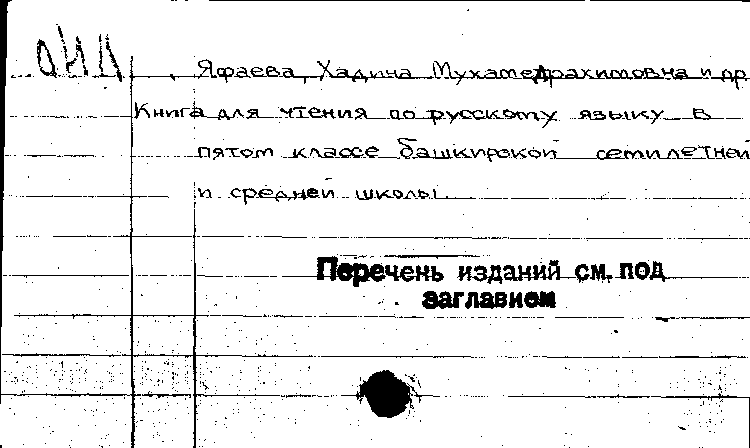 ОНЛ
Яфаева, Хадича Мухамедрахимовна и др
Книга для чтения по русскому языку в
пятом классе башкирской семилетней
и средней школы.
Перечень изданий см. под
заглавием